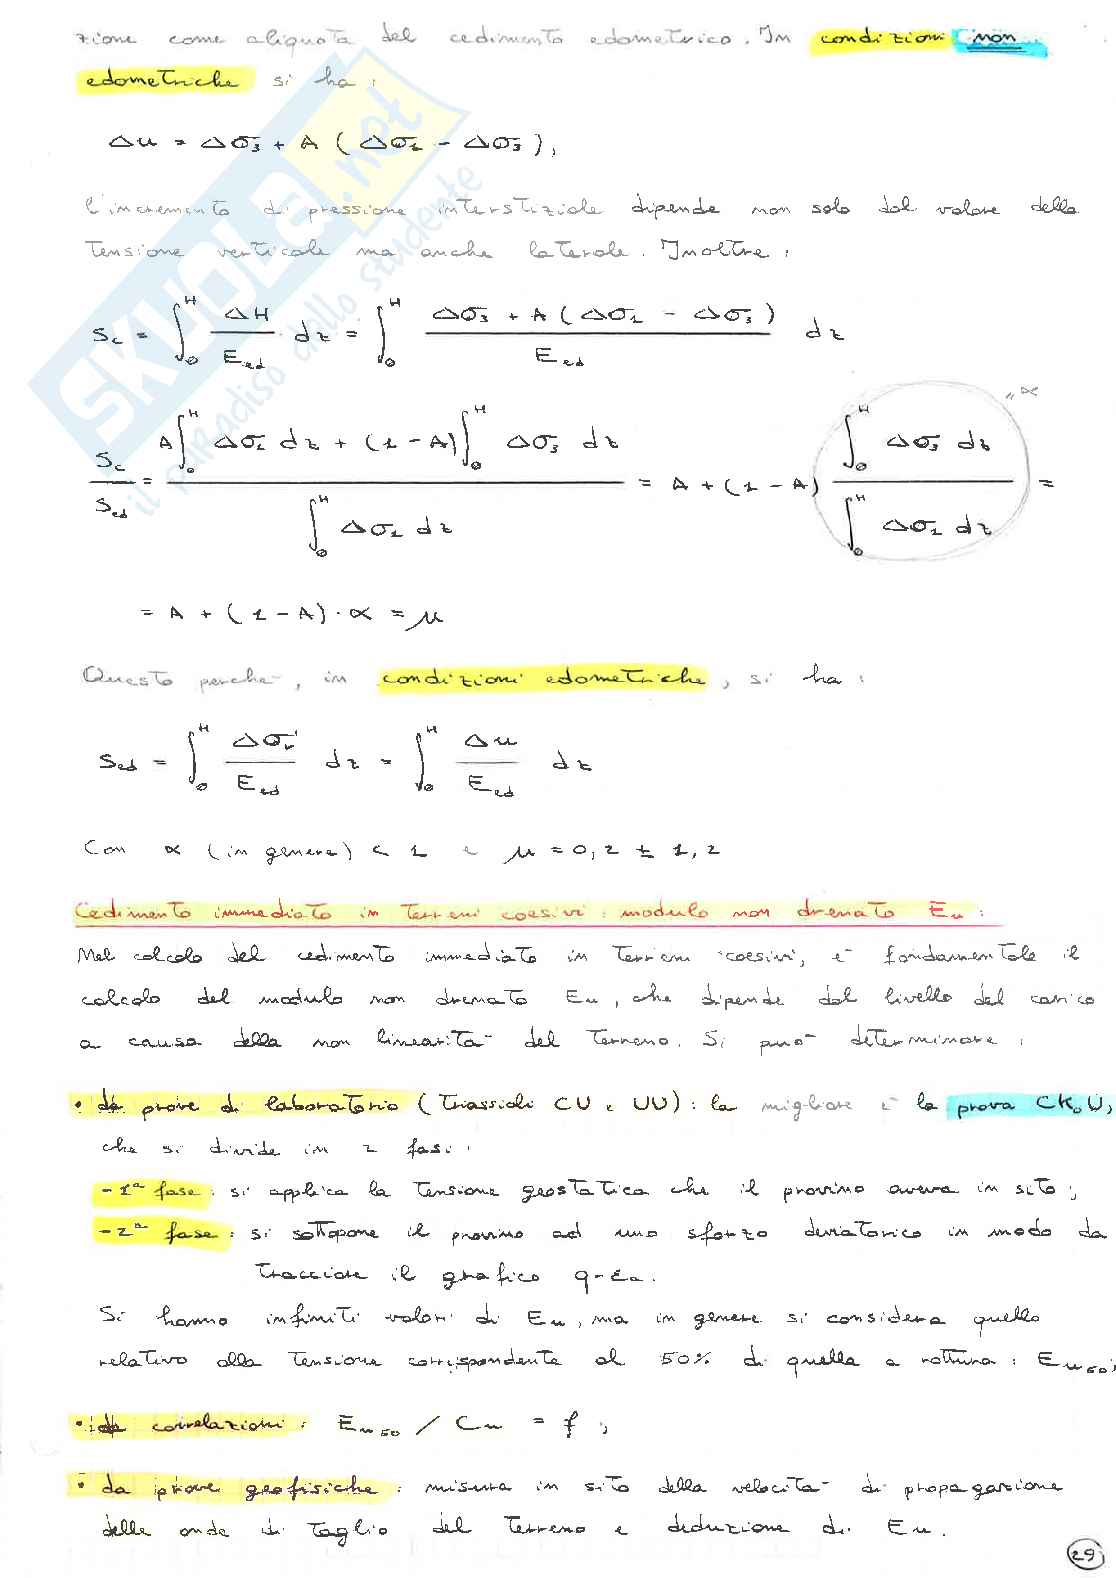 zione come aliquota del cedimento edometrico. In condizioni non
edometriche si ha:
Δu = Δσ₃ + A (Δσ₁ - Δσ₃),
l'incremento di pressione interstiziale dipende non solo dal valore della
tensione verticale ma anche laterale. Inoltre:
Sc = ∫₀ᴴ ΔH / Eed · dz = ∫₀ᴴ (Δσ₃ + A (Δσ₁ - Δσ₃)) / Eed dz
Sc / Sed = (A ∫₀ᴴ Δσ₁ dz + (1 - A) ∫₀ᴴ Δσ₃ dz) / ∫₀ᴴ Δσ₁ dz = A + (1 - A) ∫₀ᴴ Δσ₃ dz / ∫₀ᴴ Δσ₁ dz =
"α
= A + (1 - A) · α = μ
Questo perche', in condizioni edometriche, si ha:
Sed = ∫₀ᴴ Δσv' / Eed dz = ∫₀ᴴ Δu / Eed dz
Con α (in genere) < 1 e μ = 0,2 ± 1,2
Cedimento immediato in terreni coesivi: modulo non drenato Eu:
Nel calcolo del cedimento immediato in terreni coesivi, e' fondamentale il
calcolo del modulo non drenato Eu, che dipende dal livello del carico
a causa della non linearita' del terreno. Si puo' determinare:
• da prove di laboratorio (triassiali CU e UU): la migliore e' la prova CK₀U,
che si divide in 2 fasi:
- 1ª fase: si applica la tensione geostatica che il provino aveva in sito;
- 2ª fase: si sottopone il provino ad uno sforzo deviatorico in modo da
tracciare il grafico q-εa.
Si hanno infiniti valori di Eu, ma in genere si considera quello
relativo alla tensione corrispondente al 50% di quella a rottura: Eu50;
• da correlazioni: Eu50 / Cu = f;
• da prove geofisiche: misura in sito della velocita' di propagazione
delle onde di taglio del terreno e deduzione di Eu.
29
SKUOLA.net
il paradiso dello studente